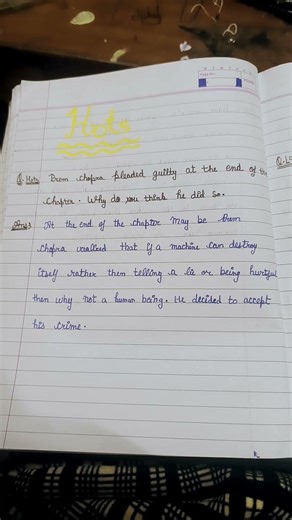 Hots
Q. Hots Brem Chopra pleaded guilty at the end of the
chapter. Why do you think he did so.
Ans: At the end of the chapter may be Brem
Chopra realised that if a machine can destroy
itself rather then telling a lie or being hurtful
then why not a human being. He decided to accept
his crime.